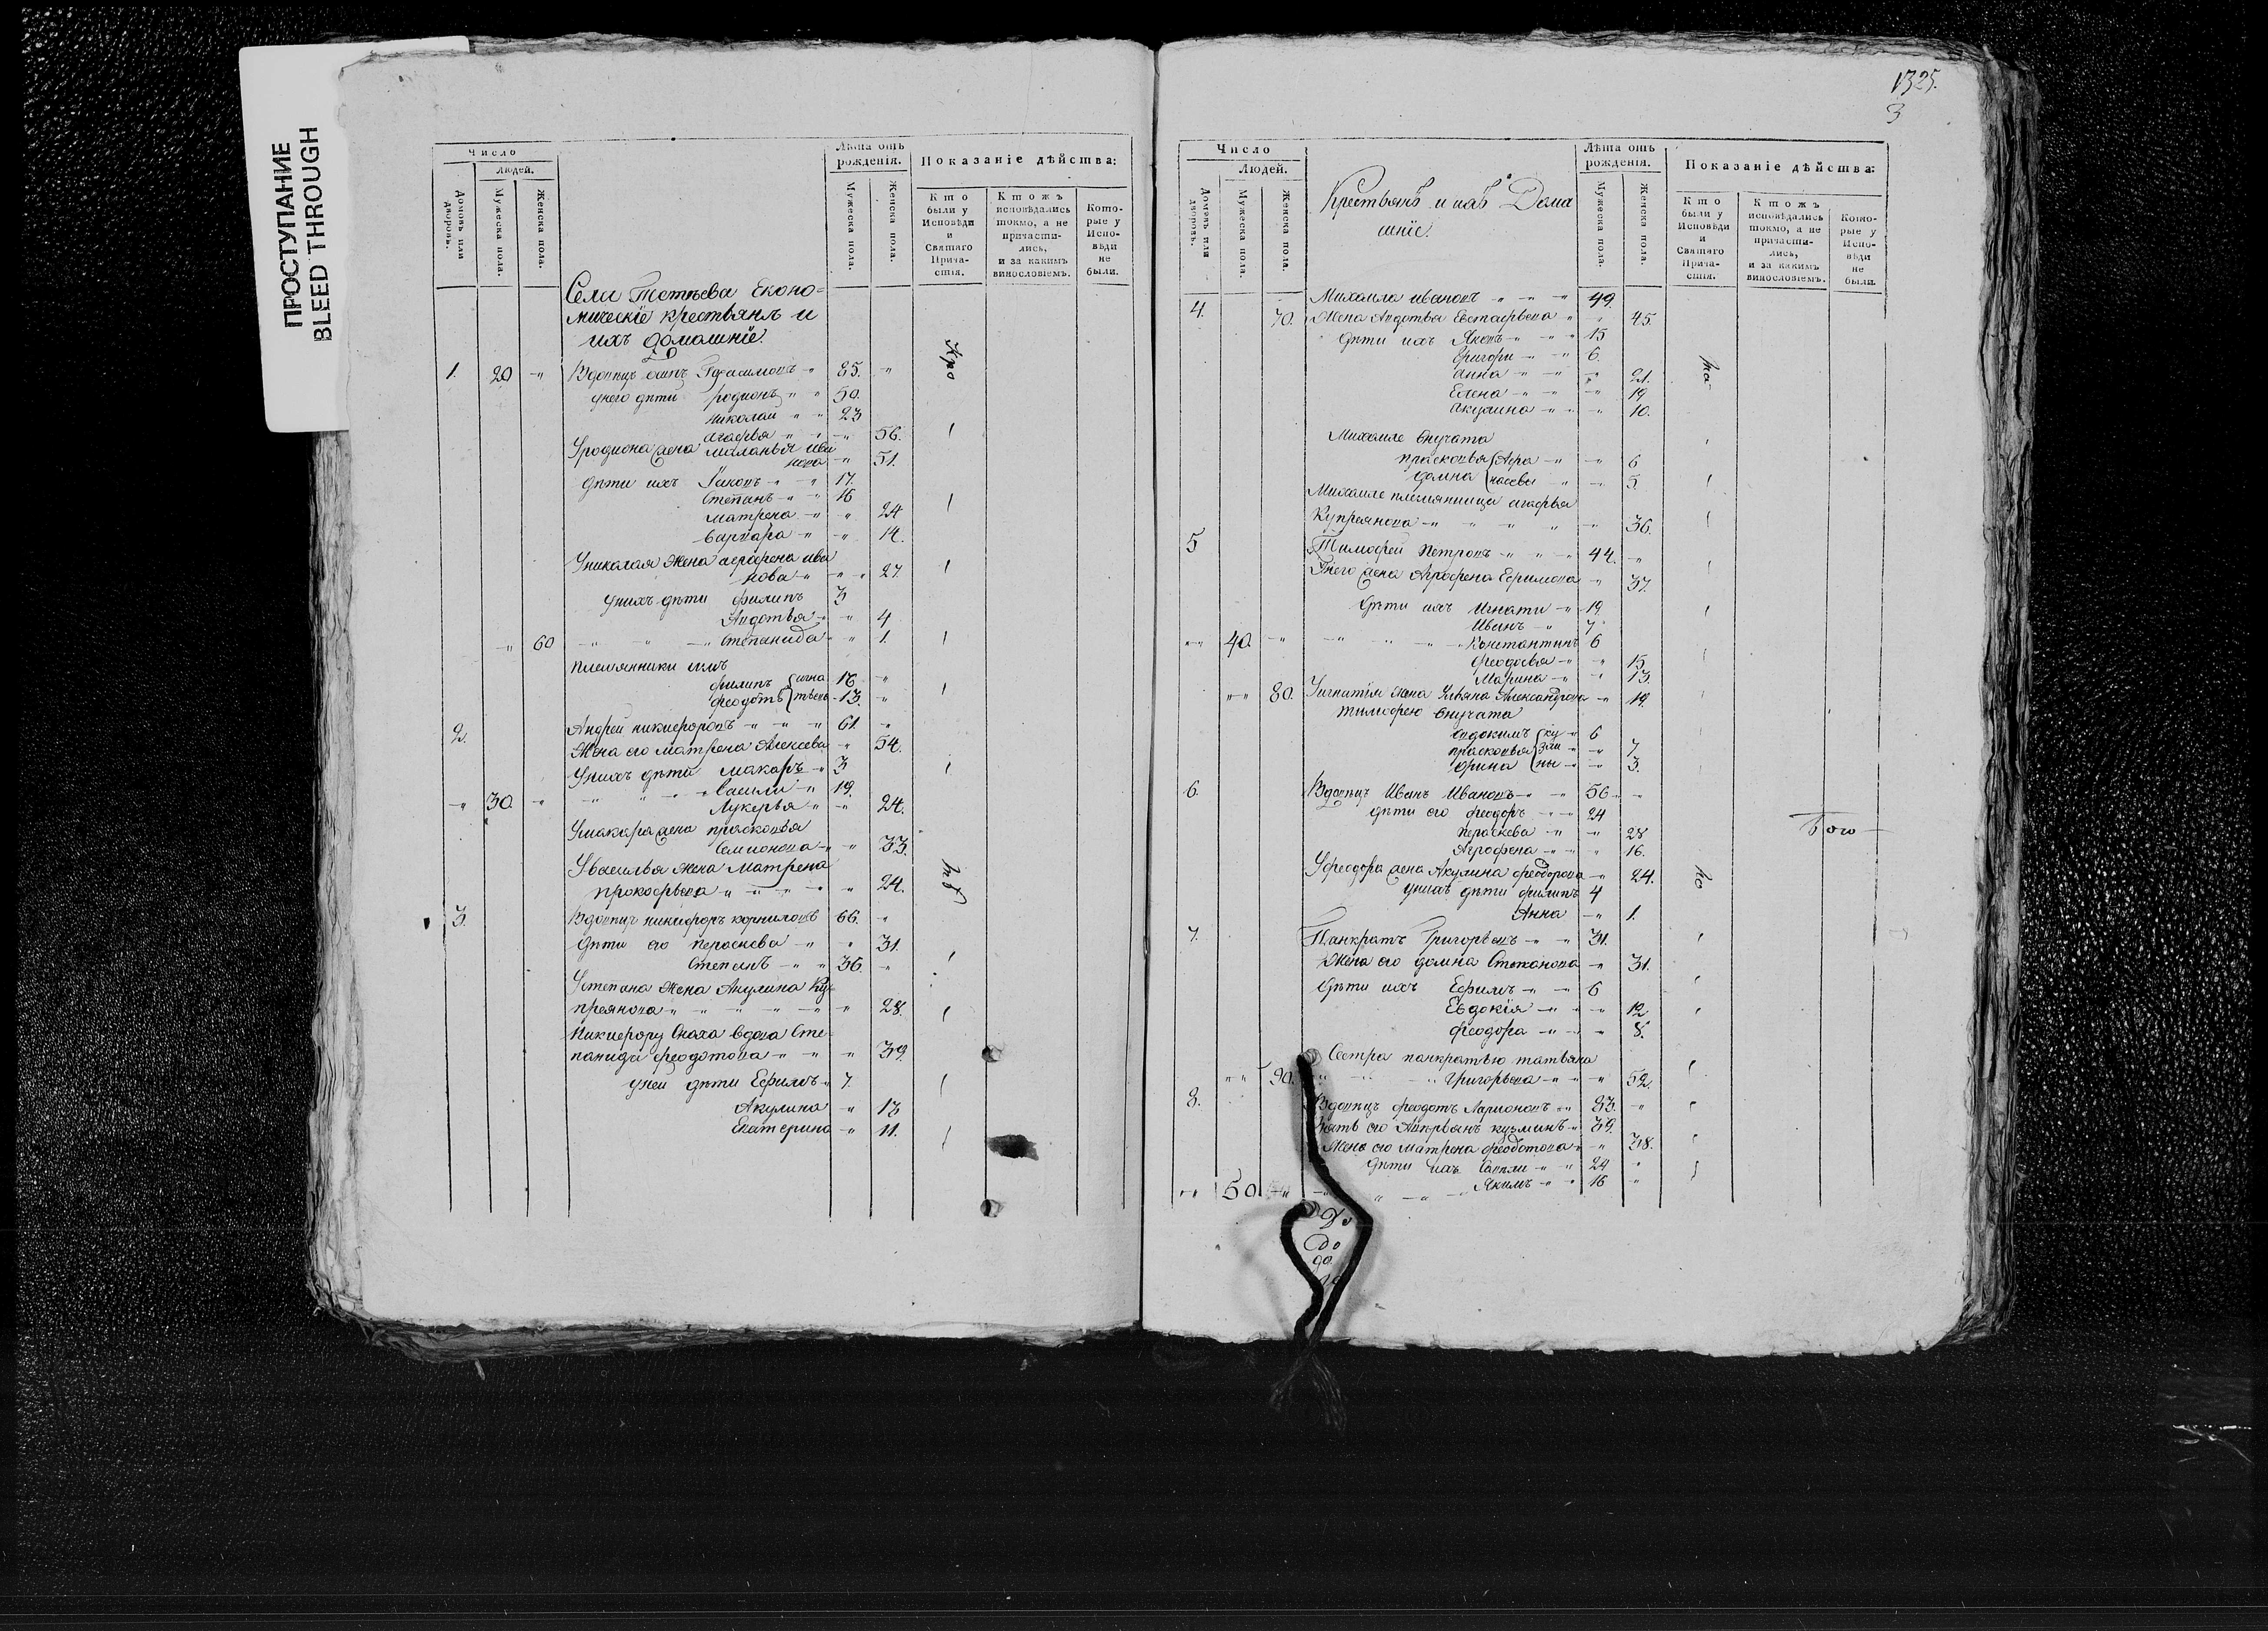 ПРОСТУПАНИЕ
BLEED THROUGH
Число
Людей.
Домовъ или дворовъ.
Мужеска пола.
Женска пола.
Лѣта отъ рожденія.
Мужеска пола.
Женска пола.
Показаніе дѣйства:
Кто были у Исповѣди и Святаго Причастія.
Ктожъ исповѣдались токмо, а не причастились, и за какимъ винословіемъ.
Которые у Исповѣди не были.
Села Еконо=
мическіе крестьянъ и
ихъ домашніе.
1. 20 Вдовецъ 85.
унего дѣти родионъ 50.
николаи 23
агафья 56.
Уродиона жена маланья ива
нова 51.
дѣти ихъ Іаковъ 17.
Степанъ 16
матрена 24
варвара 14.
Униколая жена агрофена ива
нова 27.
унихъ дѣти филипъ 3
Авдотья 4
60 Степанида 1
племянники имъ
филипъ игна 16
феодотъ тьевы 13.
2. Андреи никифоровъ 61.
Жена его матрена Алексева 54.
Унихъ дѣти макаръ 3
30. васили 19.
Лукерья 24.
Умакара жена прасковья
Семионова 33.
Увасилья жена Матрена
прокофьева 24.
3. Вдовецъ никифоръ корниловъ 66.
дѣти его пераскева 31.
Степанъ 36.
Устепана жена Акулина Ку
преянова 28.
Никифору Сноха вдова Сте
панида феодотова 39.
унеи дѣти Ефимъ 7.
Акулина 13
Екатерина 11.
1325.
3
Число
Людей.
Домовъ или дворовъ.
Мужеска пола.
Женска пола.
Крестьянъ и ихъ Дома
шніе.
Лѣта отъ рожденія.
Мужеска пола.
Женска пола.
Показаніе дѣйства:
Кто были у Исповѣди и Святаго Причастія.
Ктожъ исповѣдались токмо, а не причастились, и за какимъ винословіемъ.
Которые у Исповѣди не были.
4. Михаила ивановъ 49.
70. Жена Авдотья Евстафьева 45.
дѣти ихъ Яковъ 15
Григори 6.
анна 21.
Елена 19
акулина 10.
Михаиле внучата
прасковья 6
домна 5.
Михаиле племянница агафья
Купреянова 36.
5 Тимофеи Петровъ 44.
Унего жена Агрофена Ефимова 37.
дѣти ихъ Игнати 19.
Иванъ 7
40. Константинъ 6
феодосья 15
Марина 13.
80. Уигнатія жена Ульяна Александрова 19.
тимофею внучата
евдокимъ ку 6
прасковья зми 7.
орина ны 3.
6. Вдовецъ Иванъ Ивановъ 56
дѣти его феодоръ 24
пераскева 28
Агрофена 16.
Уфеодора жена Акулина феодорова 24.
унихъ дѣти филипъ 4
Анна 1.
7. Панкратъ Григорьевъ 31.
Жена его домна Степанова 31.
дѣти ихъ Ефимъ 6
Евдокія 12
феодора 8.
Сестра панкратью татьяна
90. Григорьева 52.
8. Вдовецъ феодотъ Ларионовъ 83.
Зять его кузминъ 39.
Жена его матрена феодотова 38.
дѣти ихъ 24
50 Якимъ 16